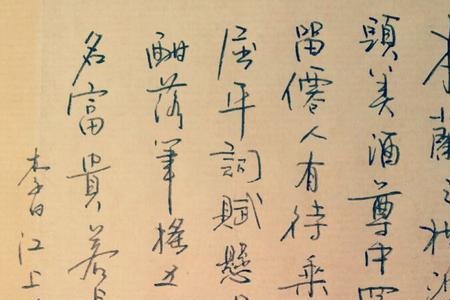 木蘭之枻沙
頭美酒尊中
留僊人有待乘
屈平詞賦懸
酣落筆搖五
名富貴若
李白江上